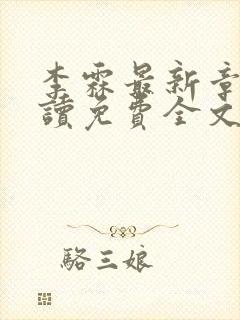 李霖最新章
讀免費全文
駱三娘